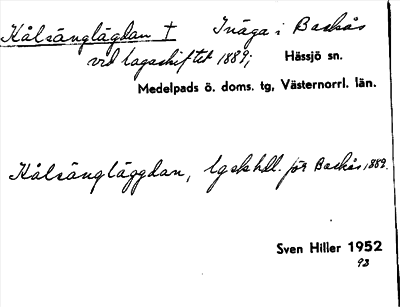 Kålsänglägdan † Inäga i Backås
vid lagaskiftet 1889;
Hässjö sn.
Medelpads ö. doms. tg, Västernorrl. län.
Kålsängläggdan, lgskhdl. för Backås 1889.
Sven Hiller 1952
93